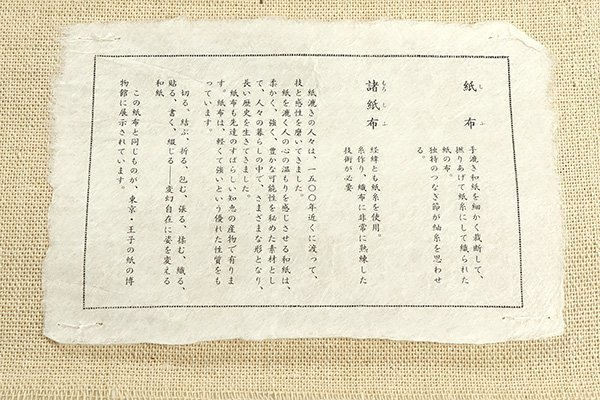 紙布
しふ
手漉き和紙を細かく裁断して、
撚りあげて紙糸にして織られた
紙の布。
独特のつなぎ節が紬糸を思わせ
る。
諸紙布
もろしふ
経緯とも紙糸を使用。
糸作り、織布に非常に熟練した
技術が必要
紙漉きの人々は、一五〇〇年近くに渡って、
技と感性を磨いてきました。
紙を漉く人の心の温もりを感じさせる和紙は、
柔かく、強く、豊かな可能性を秘めた素材とし
て、人々の暮らしの中で、さまざまな形となり、
長い歴史を生きてきました。
紙布も先達のすばらしい知恵の産物で有りま
す。紙布は、軽くて強いという優れた性質をも
っています。
切る、結ぶ、折る、包む、張る、揉む、織る、
貼る、書く、綴じる――変幻自在に姿を変える
和紙
この紙布と同じものが、東京・王子の紙の博
物館に展示されています。